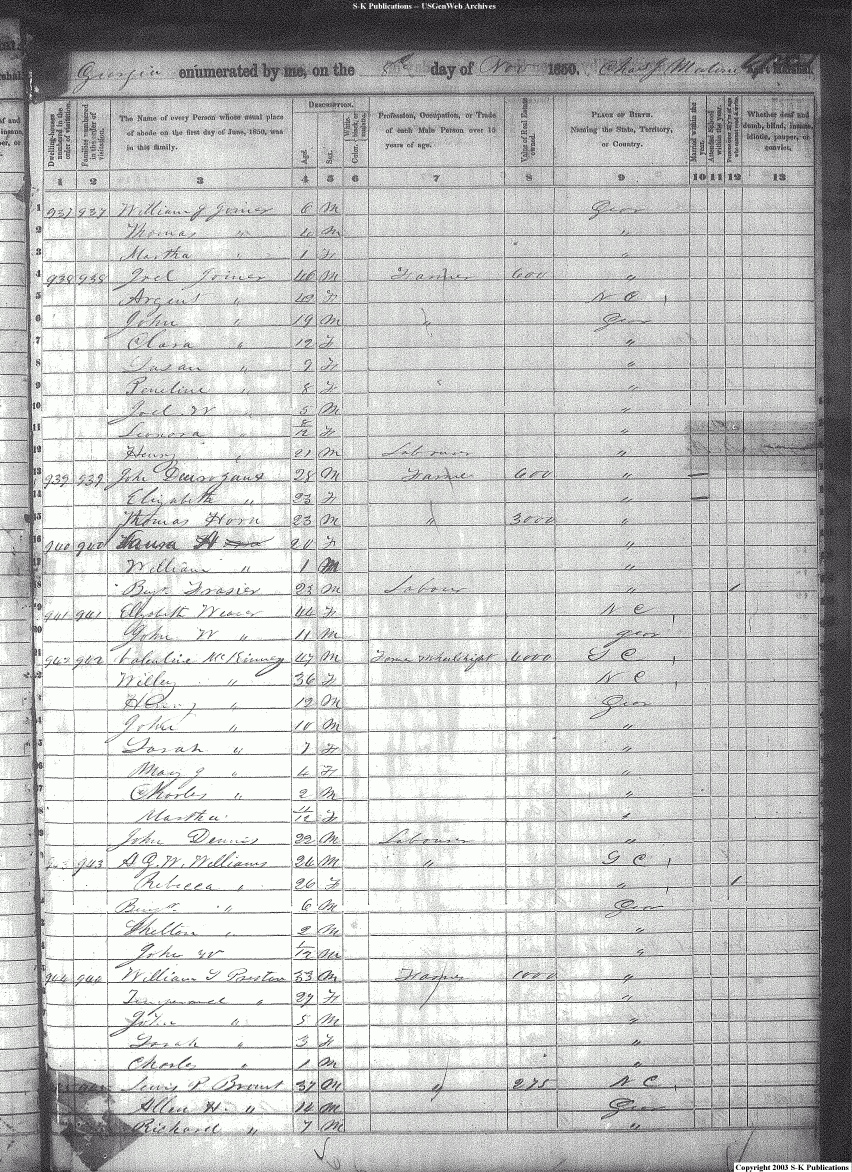 S-K Publications -- USGenWeb Archives
Georgia enumerated by me, on the 8th day of Nov 1850. Marshal.
DESCRIPTION.
Dwelling-houses numbered in the order of visitation.
Families numbered in the order of visitation.
The Name of every Person whose usual place of abode on the first day of June, 1850, was in this family.
Age.
Sex.
Color, White, black, or mulatto.
Profession, Occupation, or Trade of each Male Person over 15 years of age.
Value of Real Estate owned.
PLACE OF BIRTH. Naming the State, Territory, or Country.
Married within the year.
Attended School within the year.
Persons over 20 y'rs of age who cannot read & write.
Whether deaf and dumb, blind, insane, idiotic, pauper, or convict.
1 2 3 4 5 6 7 8 9 10 11 12 13
1 937 937 William J Joiner 6 M Geor
2 Thomas " 4 M "
3 Martha " 1 F "
4 938 938 Joel Joiner 46 M Farmer 600 "
5 " F N C
6 John " 19 M " Geor
7 Clara " 12 F "
8 Susan " 9 F "
9 " 8 F "
10 Joel W 5 M "
11 Leonora " 8/12 F "
12 Henry " 21 M Labourer "
13 939 939 John 28 M Farmer 600 "
14 Elizabeth " 23 F "
15 Thomas Horn 23 M " 3000 "
16 940 940 20 F "
17 William " 1 M "
18 Benj. Frasier 23 M Labour "
19 941 941 Elizabeth Weaver 44 F N C
20 John W " 11 M Geor
21 942 942 Valentine McKinney 47 M 4000 S C
2 Willey " 36 F N C
3 Henry " 12 M Geor
4 John " 10 M "
5 Sarah " 7 F "
6 Mary J " 4 F "
7 Charles " 2 M "
8 Martha 11/12 F "
9 John Dennis 22 M Labourer "
943 A G. W. Williams 26 M " S C
Rebecca " 26 F "
Benj. " 6 M Geor
Shelton " 2 M "
John W 1/12 M "
944 944 William T Preston 33 M Farmer 1000 "
" 27 F "
John " 5 M "
Sarah " 3 F "
Charles " 1 M "
Lewis P. Brount 37 M " 275 N C
Allen H. " 14 M Geor
Richard " 7 M "
Copyright 2003 S-K Publications